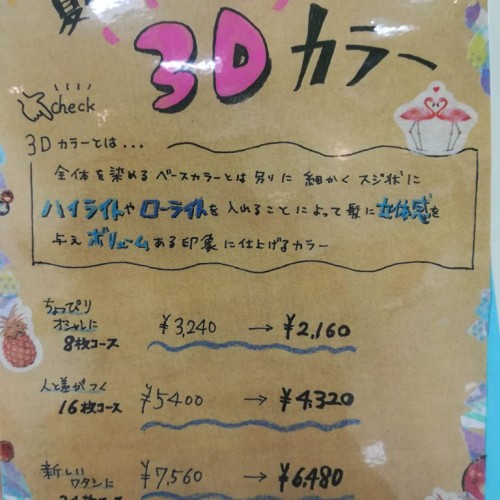 夏
3Dカラー
check
3Dカラーとは...
全体を染めるベースカラーとは別りに 細かくスジ状に
ハイライトやローライトを入れることによって髪に立体感を
与えボリュームある印象に仕上げるカラー
ちょっぴり
オシャレに
8枚コース ¥3,240 → ¥2,160
人と差がつく
16枚コース ¥5400 → ¥4,320
新しい
ワタシに ¥7,560 → ¥6,480
24枚コース